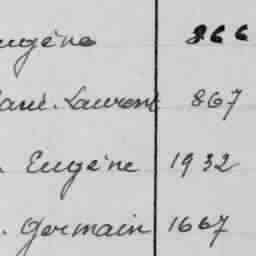 Eugène 866
Laurent 867
. Eugène 1932
. Germain 1667